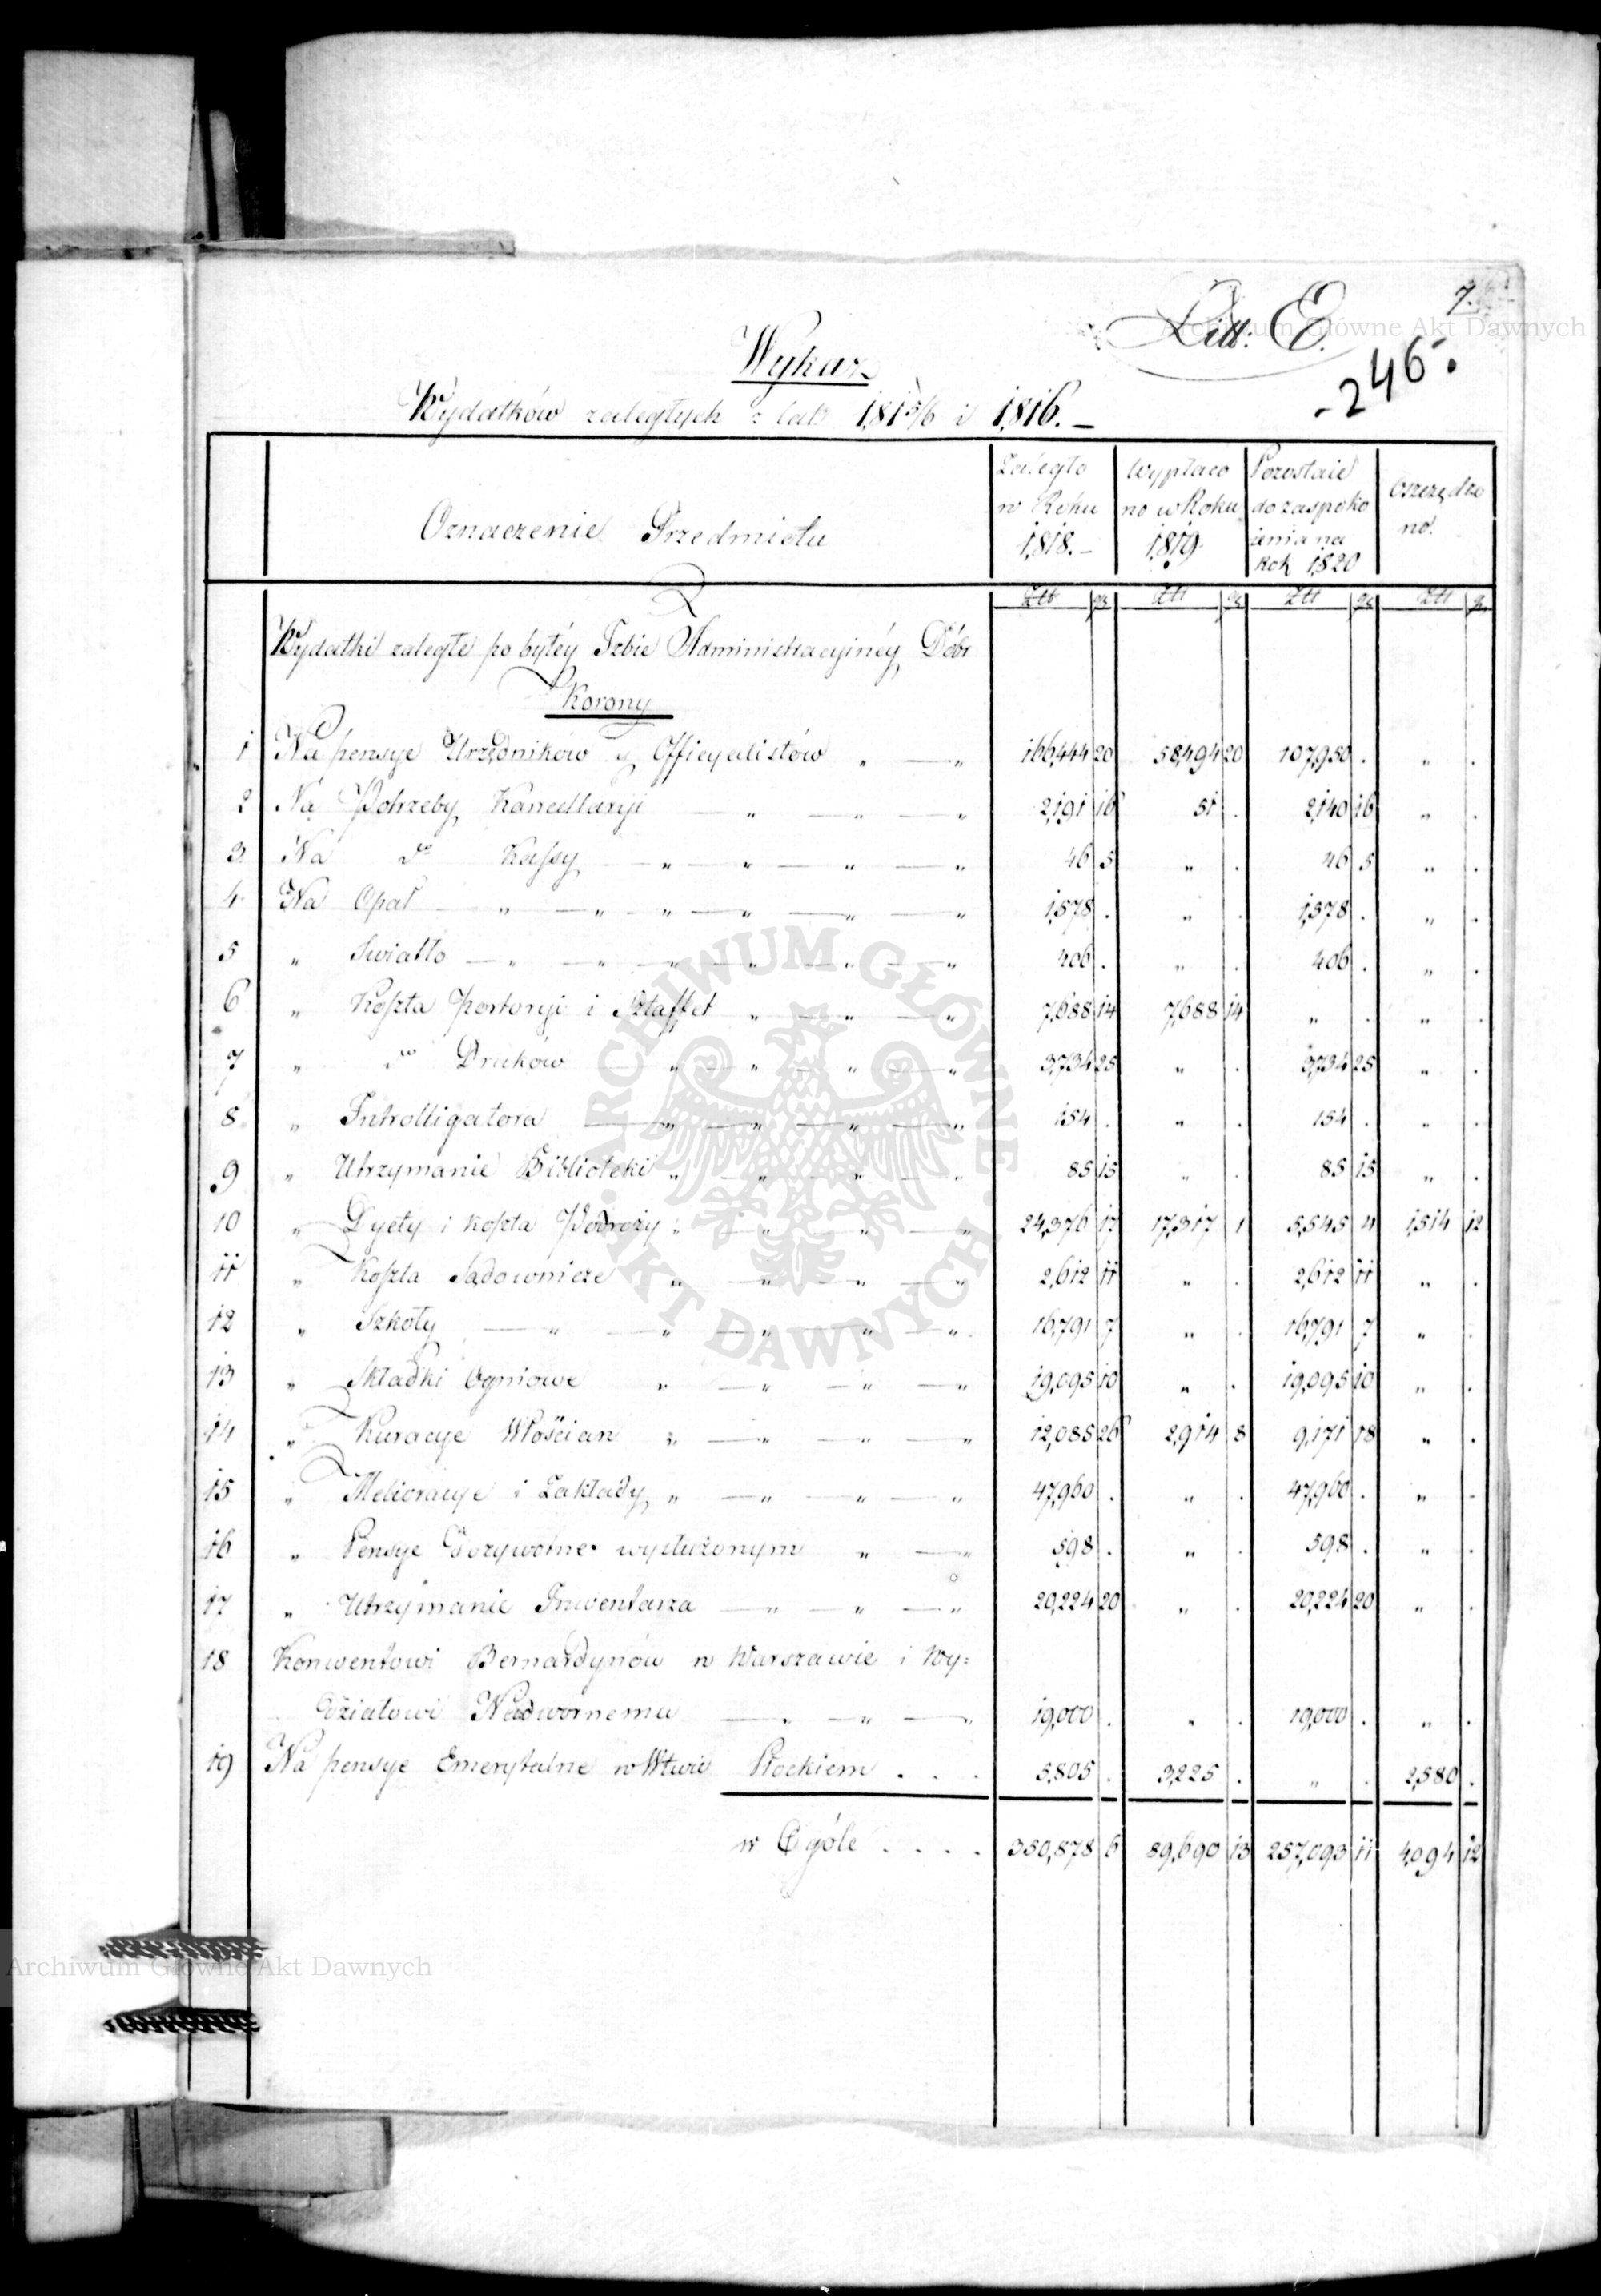 7.
Litt: E.
Archiwum Główne Akt Dawnych
246.
Wykaz
Wydatków zaległych z lat 1815/6 i 1816.
Oznaczenie Przedmiotu
Zaległo w Roku 1818.
Wypłaco no w Roku 1819
Pozostaie do zaspoko ienia na Rok 1820
Oszczędzo no.
Złł gr Złł gr Złł gr Złł gr
Wydatki zaległe po byłéy Izbie Administracyinéy Dóbr
Korony
1 Na pensye Urzędników y Officyalistów „ — „ 166,444 20 58,494 20 107,950 . „ .
2 Na Potrzeby Kancellaryi — „ — „ — „ 2,191 16 51 . 2,140 16 „ .
3 Na do Kassy — „ — „ — „ — „ 46 5 „ . 46 5 „ .
4 Na Opał „ — „ — „ — „ — „ — „ 1,578 . „ . 1,578 . „ .
5 „ Swiatło — „ — „ — „ — „ — „ — „ 406 . „ . 406 . „ .
6 „ Koszta Portoryi i Sztaffet „ — „ — „ 7,688 14 7,688 14 „ . „ .
7 „ do Druków — „ — „ — „ — „ 3,734 25 „ . 3,734 25 „ .
8 „ Introlligatora — „ — „ — „ — „ 154 . „ . 154 . „ .
9 „ Utrzymanie Biblioteki „ — „ — „ — „ 85 15 „ . 85 15 „ .
10 „ Dyety i koszta Podroży „ — „ — „ — „ 24,376 17 17,317 1 5,545 4 1,514 12
11 „ Koszta Sądownicze „ — „ — „ — „ 2,612 11 „ . 2,612 11 „ .
12 „ Szkoły — „ — „ — „ — „ — „ 16,791 7 „ . 16,791 7 „ .
13 „ Składki Ogniowe „ — „ — „ — „ 19,095 10 „ . 19,095 10 „ .
14 „ Kuracye Włościan „ — „ — „ — „ 12,085 26 2,914 8 9,171 18 „ .
15 „ Melioracye i Zakłady „ — „ — „ — „ 47,960 . „ . 47,960 . „ .
16 „ Pensye Dożywotne wysłużonym „ — „ 598 . „ . 598 . „ .
17 „ Utrzymanie Inwentarza — „ — „ — „ 20,224 20 „ . 20,224 20 „ .
18 Konwentowi Bernardynów w Warszawie i Wy=
działowi Nadwornemu — „ — „ — „ 19,000 . „ . 19,000 . „ .
19 Na pensye Emerytalne w Wtwie Płockiem . . . 5,805 . 3,225 . „ . 2,580 .
w Ogóle . . . . 350,878 6 89,690 13 257,093 11 4,094 12
ARCHIWUM GŁÓWNE
AKT DAWNYCH
Archiwum Główne Akt Dawnych